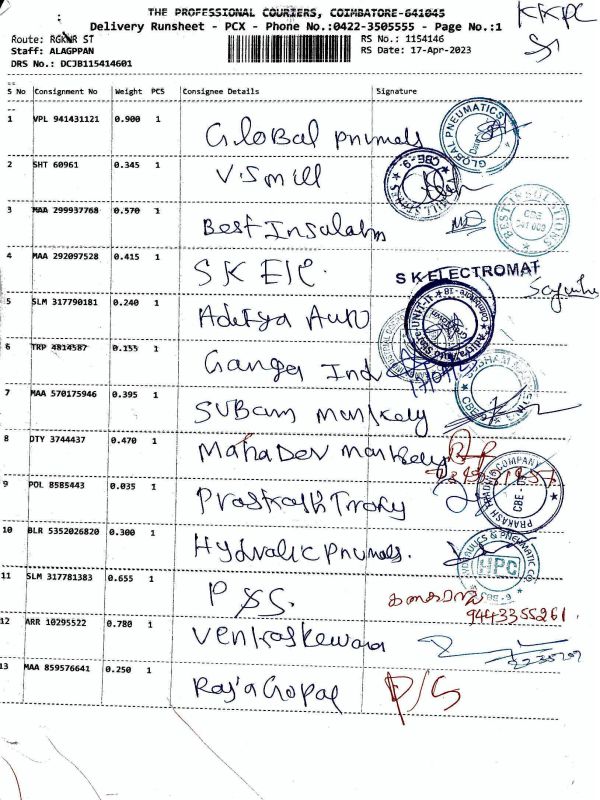 THE PROFESSIONAL COURIERS, COIMBATORE-641045
KKPC
Delivery Runsheet - PCX - Phone No.:0422-3505555 - Page No.:1
Route: RGKNR ST
RS No.: 1154146
Staff: ALAGPPAN
RS Date: 17-Apr-2023
DRS No.: DCJB115414601
S No Consignment No Weight PCS Consignee Details Signature
1 VPL 941431121 0.900 1 Global pnumals
GLOBAL PNEUMATICS
2 SHT 60961 0.345 1 V.S mill
CBE-9
3 MAA 299937768 0.570 1 Best Insulatn
BEST INSULATIONS
CBE
641 009
4 MAA 292097528 0.415 1 S K Elc.
S K ELECTROMAT
5 SLM 317790181 0.240 1 Aditya Auto
6 TRP 4814587 0.155 1 Ganga Ind
7 MAA 570175946 0.395 1 SUBam mankely
8 DTY 3744437 0.470 1 Mahadev mankely
9 POL 8585443 0.035 1 Praskath Trony
PRAKASH COMPANY
CBE
10 BLR 5352026820 0.300 1 Hydralic pnumals.
HYDRAULICS & PNEUMATIC CO
HPC
CBE-9
11 SLM 317781383 0.655 1 P SS.
9443355261.
12 ARR 10295522 0.780 1 Venkaskewara
13 MAA 859576641 0.250 1 Raja Gopal
P/S